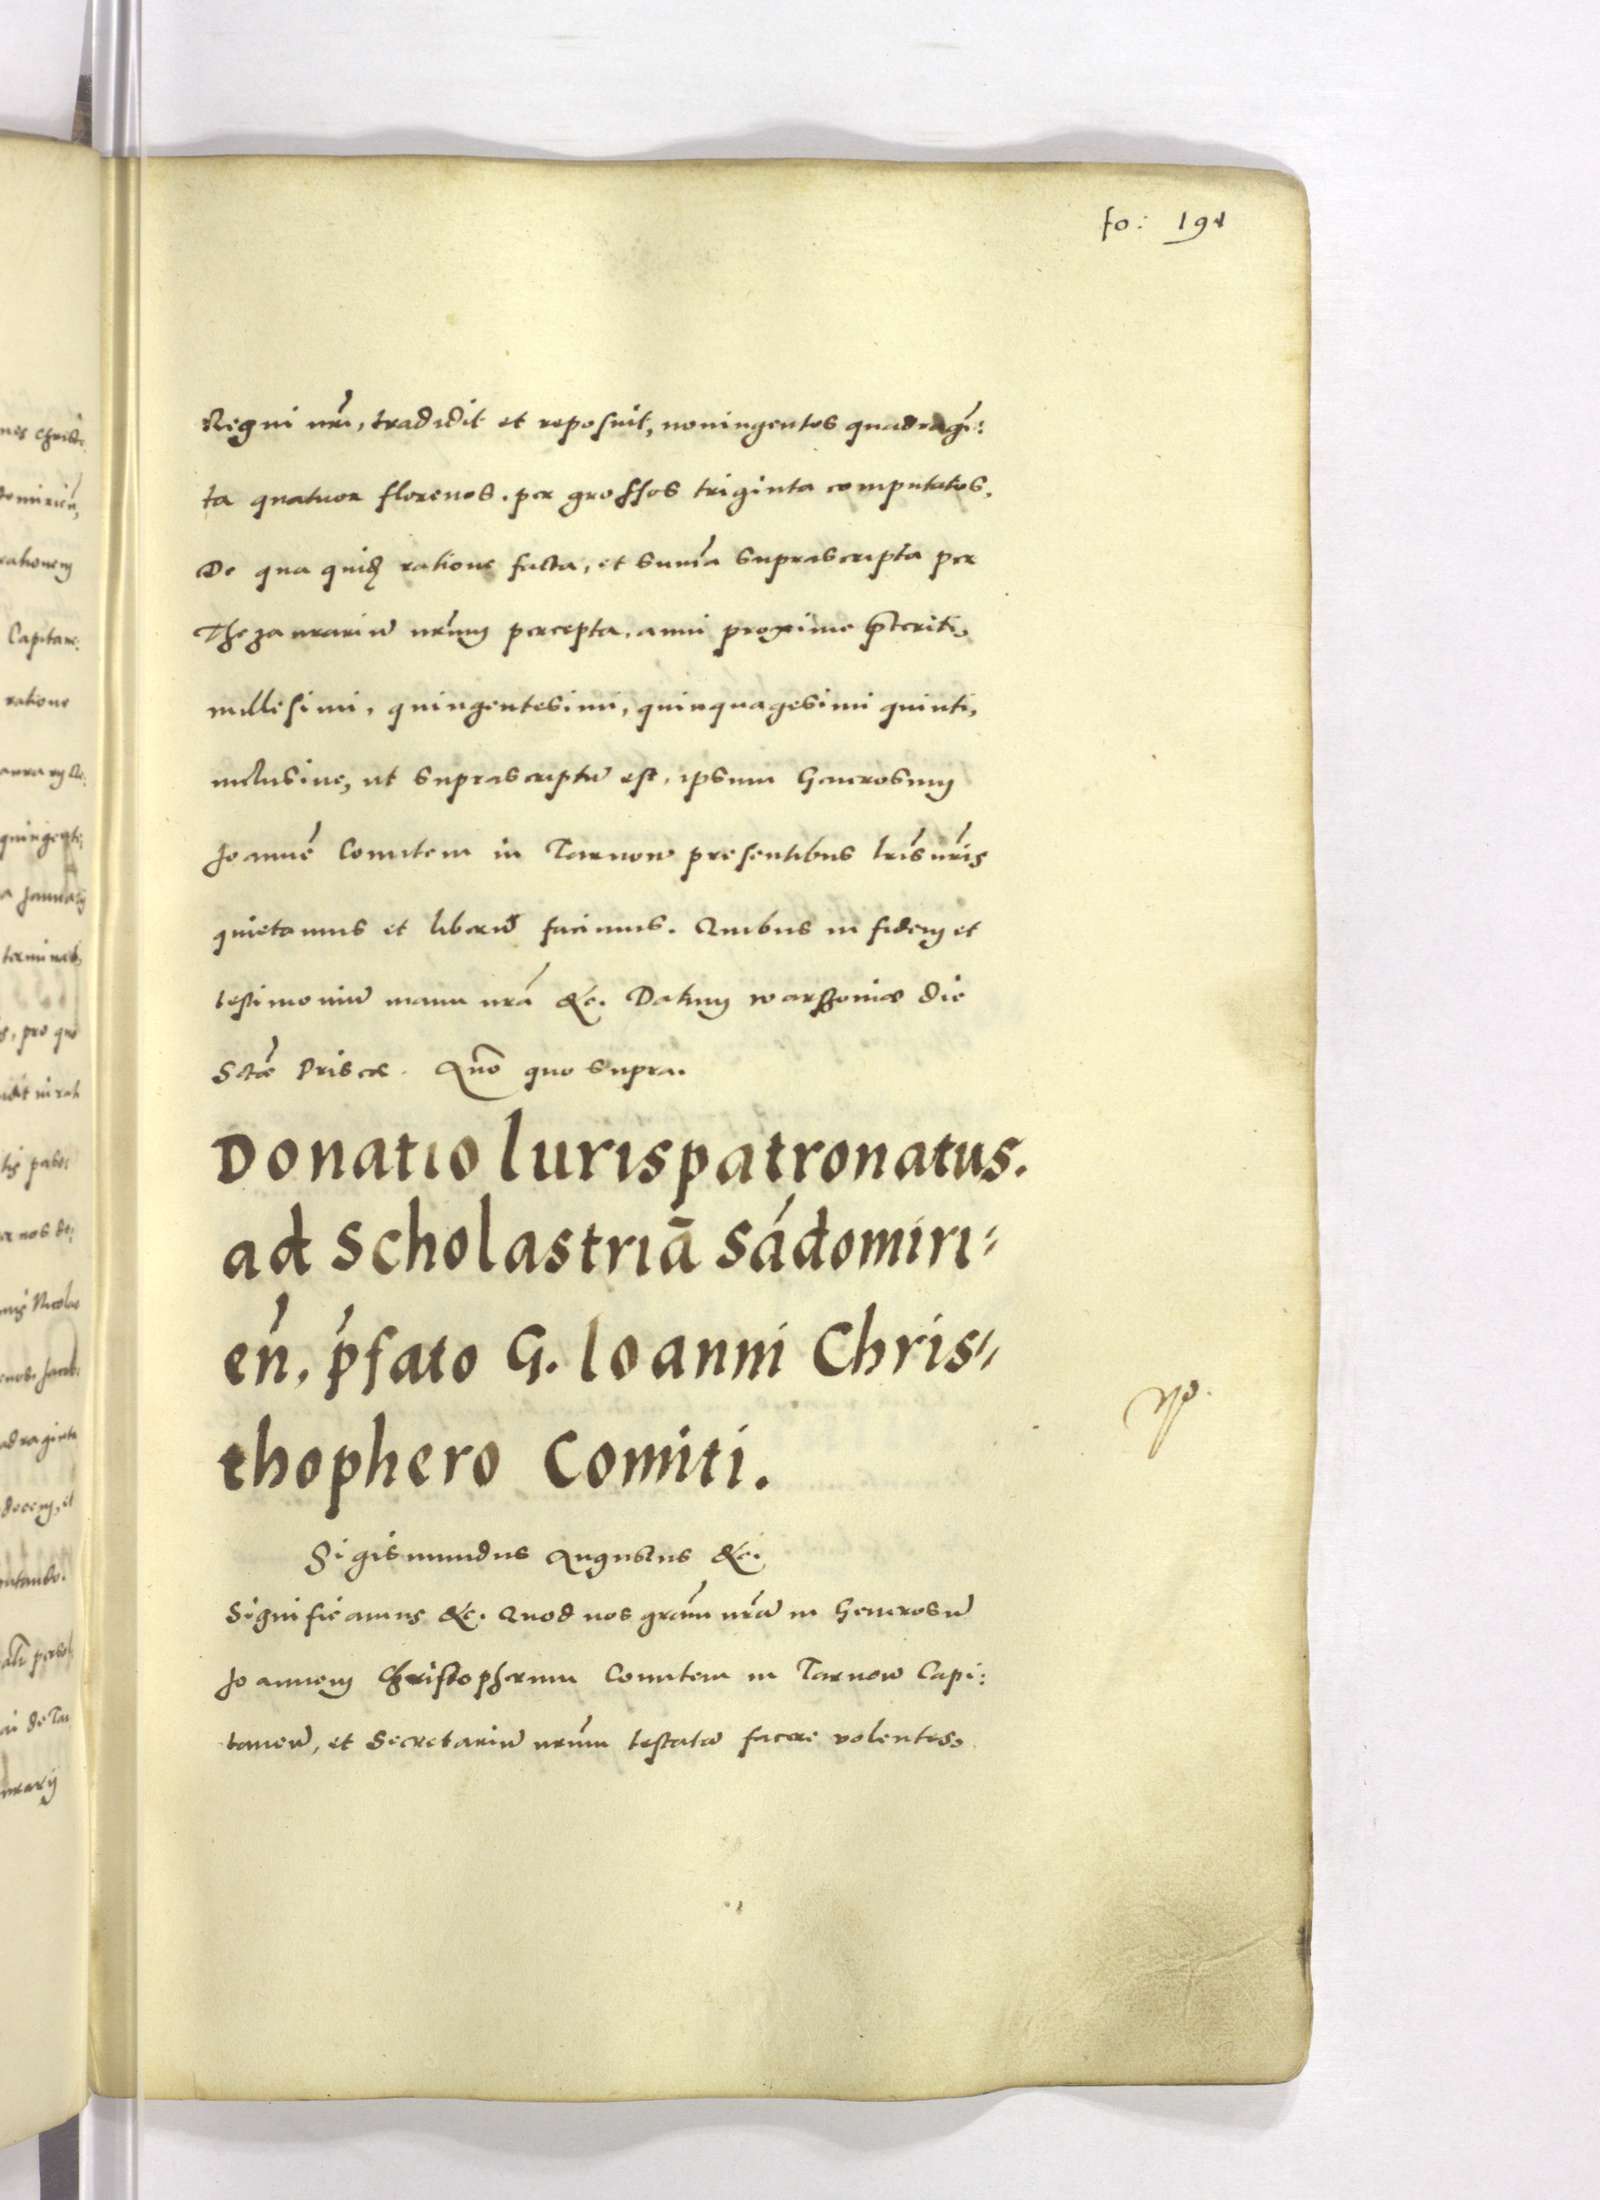 fo: 191
Regni nrĩ, tradidit et reposuit, noningentos quadragĩ:
ta quatuor florenos. per grossos triginta computatos.
De qua quidẽ ratione facta, et sum̃a suprascripta per
Thezaurariũ nr̃um percepta, anni proxime p̃teriti,
millesimi, quingentesimi, quinquagesimi quinti,
inclusiue, ut suprascriptũ est, ipsum Generosum
Joannẽ Comitem in Tarnow presentibus lr̃is nr̃is
quietamus et liberũ facimus. Quibus in fidem et
testimoniũ manu nrã &c. Datum warszouiæ die
Sctæ̃ Priscæ. Añno quo supra.
Donatio Iurispatronatus.
ad Scholastriã Sãdomiri=
eñ. p̃fato G. Ioanni Chris=
thophero Comiti.
Sigismundus Augustus &c.
Significamus &c. Quod nos grãm nrãm in Generosũ
Joannem Christopherum Comitem in Tarnow Capi:
taneũ, et Secretariũ nr̃um testatã facere volentes,